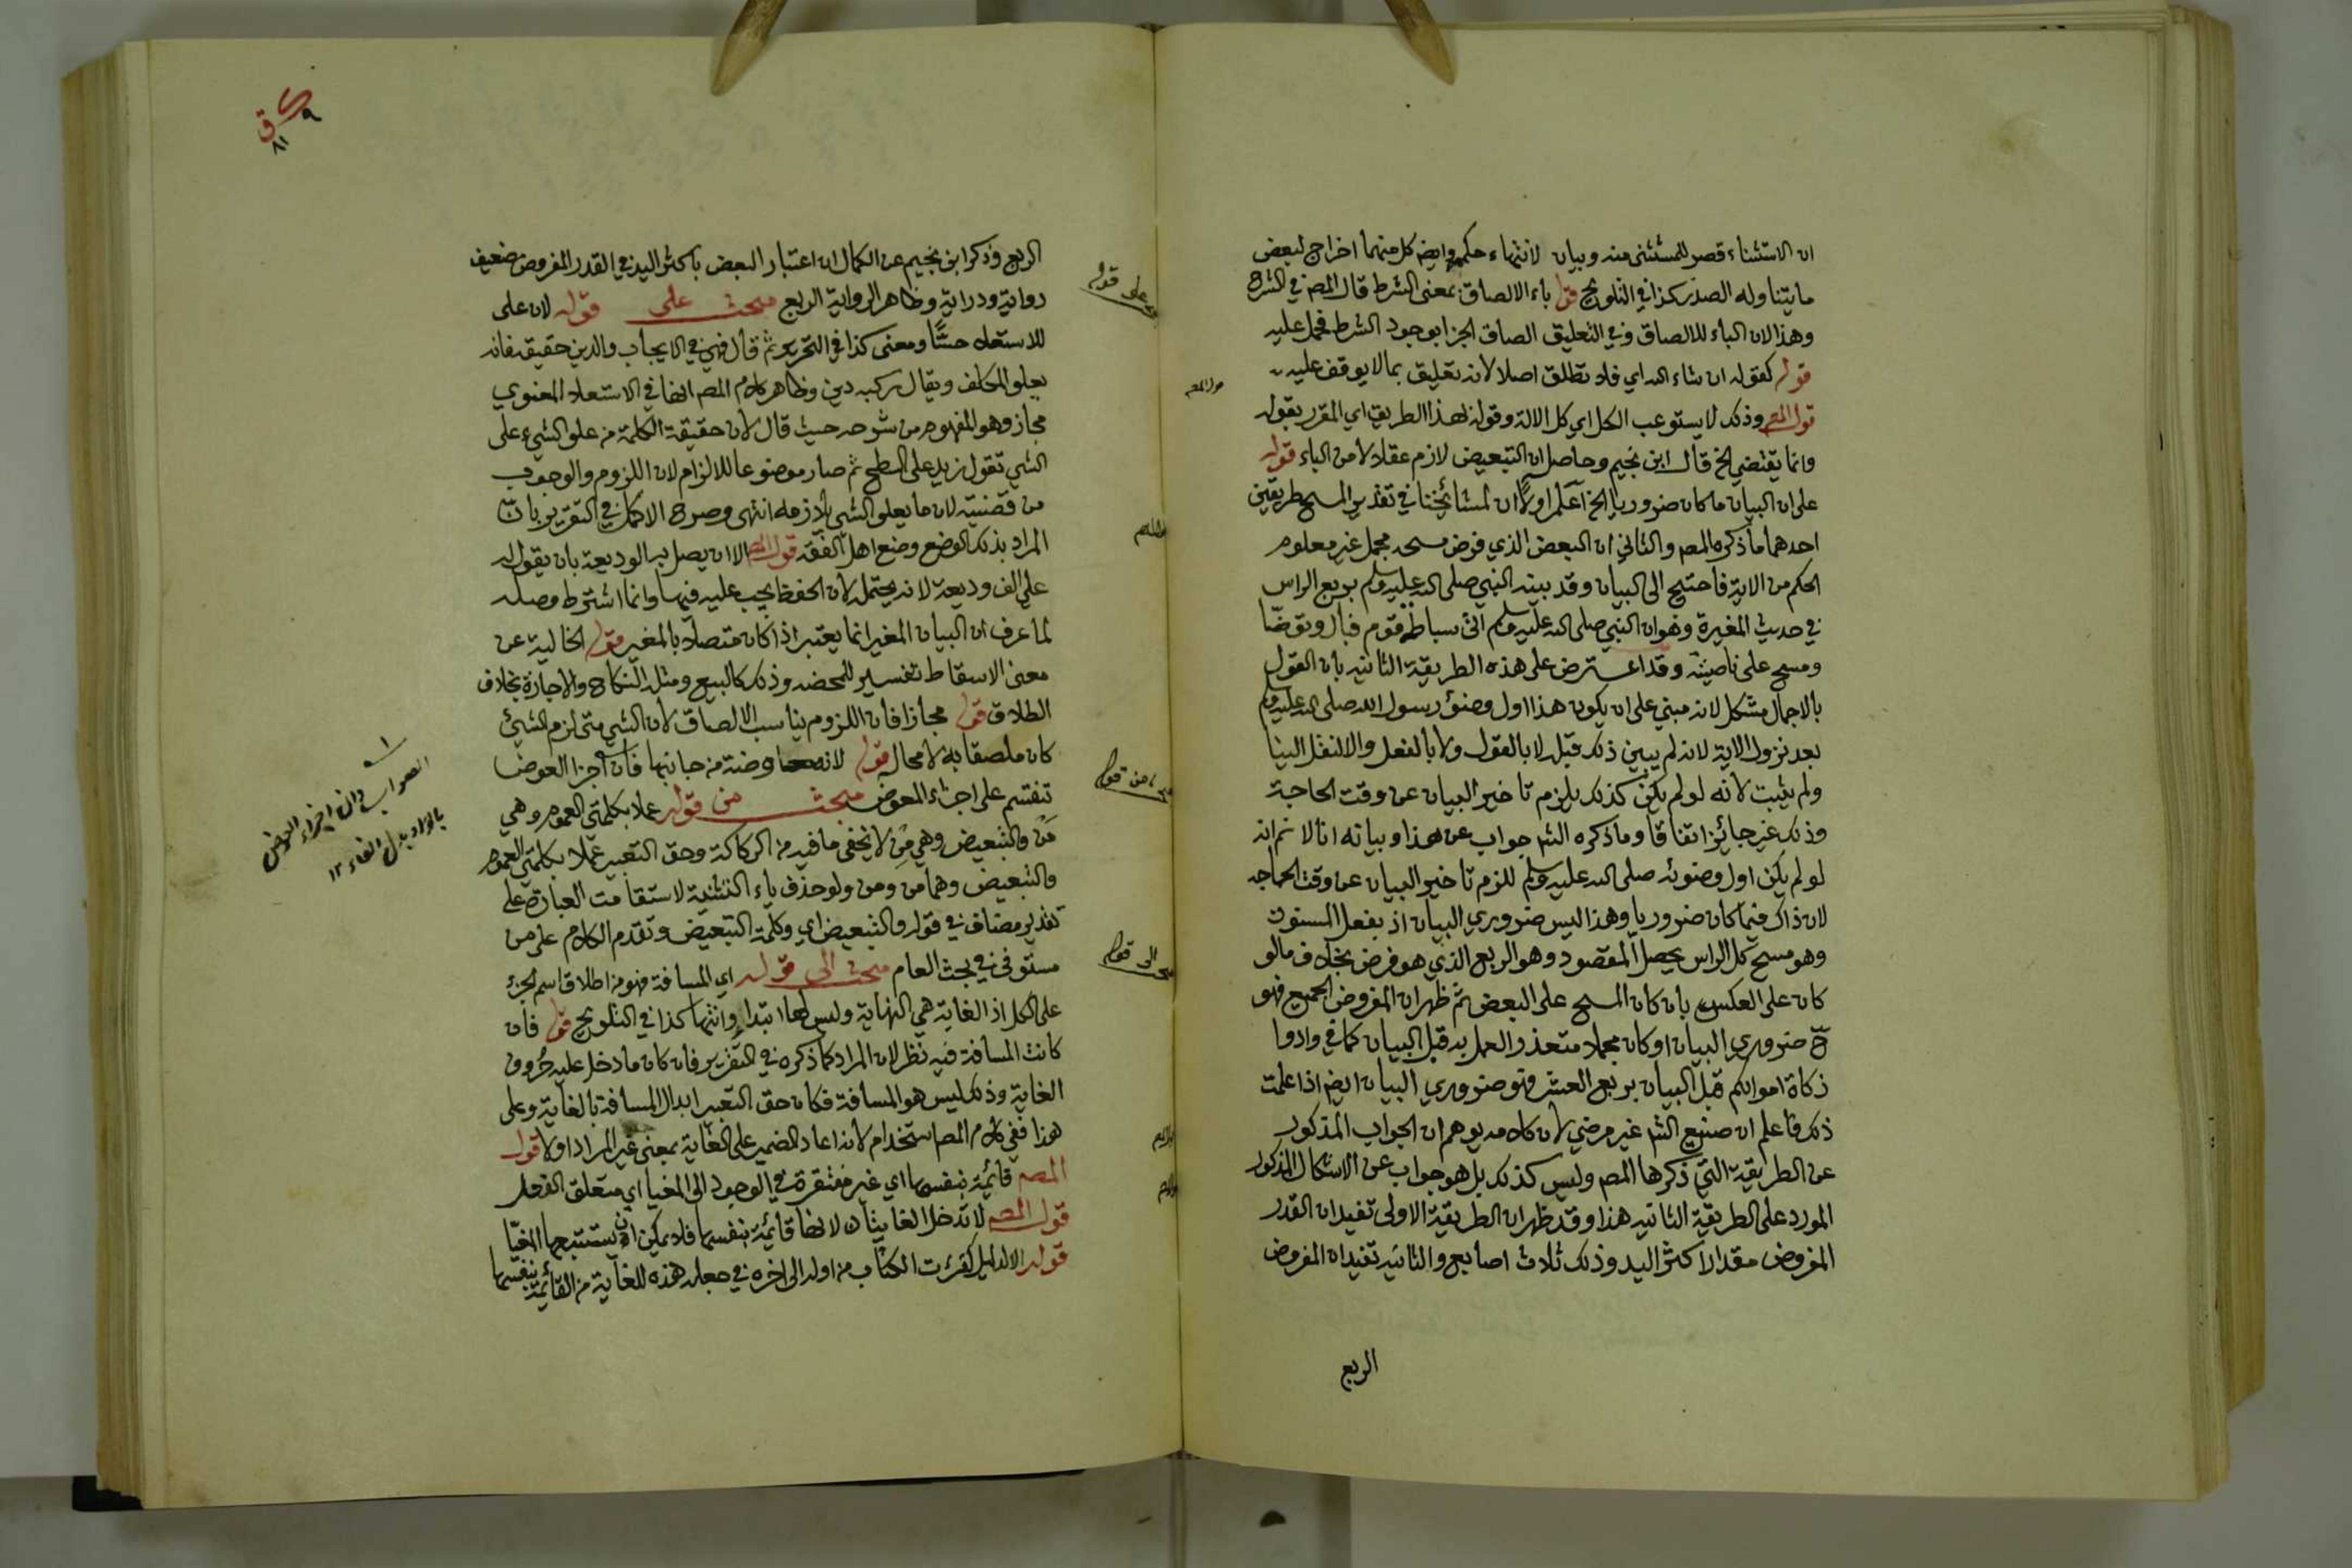 ان الاستثناء قصر للمستثنى منه وبيان لانتهاء حكمه وايضا كل منهما اخراج لبعض
ما يتناوله الصدر كذا في التلويح قوله باء الالصاق بمعنى الشرط قال المص في الشرح
وهذا لان الباء للالصاق وفي التعليق الصاق الجزا بوجود الشرط فحمل عليه
قوله كقوله ان شاء الله اي فلا تطلق اصلا لانه تعليق بما لا يوقف عليه
قول المص وذلك لا يستوعب الكل اي كل الالة وقوله لهذا الطريق اي المقرر بقوله
وانما يقتضي الخ قال ابن نجيم وحاصل ان التبعيض لازم عقلا لا من الباء قوله
على ان البيان ما كان ضروريا الخ اعلم اولا ان لمشائخنا في تقدير المسح طريقين
احدهما ما ذكره المص والثاني ان البعض الذي فرض مسحه مجمل غير معلوم
الحكم من الاية فاحتيج الى البيان وقد بينه النبي صلى الله عليه وسلم بربع الراس
في حديث المغيرة وهو ان النبي صلى الله عليه وسلم اتى سباطة قوم فبال وتوضا
ومسح على ناصيته وقد اعترض على هذه الطريقة الثانيه بان القول
بالاجمال مشكل لانه مبني على ان يكون هذا اول وضوء رسول الله صلى الله عليه وسلم
بعد نزول الاية لانه لم يبين ذلك قبله لا بالقول ولا بالفعل والا لنقل الينا
ولم يثبت لانه لو لم يكن كذلك يلزم تاخير البيان عن وقت الحاجة
وذلك غير جائز اتفاقا وما ذكره الشر جواب عن هذا وبيانه انا لا نم انه
لو لم يكن اول وضوئه صلى الله عليه وسلم للزم تاخير البيان عن وقت الحاجه
لان ذاك فيما كان ضروريا وهذا ليس ضروري البيان اذ بفعل المسنون
وهو مسح كل الراس يحصل المقصود وهو الربع الذي هو فرض بخلاف ما لو
كان على العكس بان كان المسح على البعض ثم ظهر ان المفروض الجميع فهو
ح ضروري البيان او كان مجملا متعذر العمل به قبل البيان كما في وادوا
زكاة اموالكم قبل البيان بربع العشر فهو ضروري البيان ايض اذا علمت
ذلك فاعلم ان صنيع الشر غير مرضي لان كلامه يوهم ان الجواب المذكور
عن الطريقة التي ذكرها المص وليس كذلك بل هو جواب عن الاشكال المذكور
المورد على الطريقة الثانيه هذا وقد ظهر ان الطريقة الاولى تفيد ان القدر
المفروض مقدار اكثر اليد وذلك ثلاث اصابع والثانيه تفيد ان المفروض
الربع
الربع وذكر ابن نجيم عن الكمال ان اعتبار البعض باكثر اليد في القدر المفروض ضعيف
رواية ودراية وظاهر الرواية الربع مبحث على قوله لان على
للاستعلاء حسًّا ومعنى كذا في التحرير ثم قال فهي في الايجاب والدين حقيقة فانه
يعلو المكلف ويقال ركبه دين وظاهر كلام المص انها في الاستعلاء المعنوي
مجاز وهو المفهوم من شرحه حيث قال لان حقيقة الكلمة من علو الشيء على
الشي تقول زيد على السطح ثم صار موضوعا للالزام لان اللزوم والوجوب
من قضيته لان ما يعلو الشي يلازمه انتهى وصرح الاكمل في التقرير بان
المراد بذلك الوضع وضع اهل الفقه قول المص الا ان يصل به الوديعة بان يقول له
علي الف وديعة لانه يحتمله لان الحفظ يجب عليه فيها وانما اشترط وصله
لما عرف ان البيان المغير انما يعتبر اذا كان متصلا بالمغير قوله الخالية عن
معنى الاسقاط تفسير للمحضه وذلك كالبيع ومثله النكاح والاجارة بخلاف
الطلاق قوله مجازا فان اللزوم يناسب الالصاق لان الشي متى لزم الشيئ
كان ملصقا به لا محاله قوله لانه معاوضة من جانبها فان اجزا العوض
تنقسم على اجزاء المعوض مبحث من قوله عملا بكلمتي العموم وهي
مَن والتبعيض وهي مِن لا يخفى ما فيه من الركاكة وحق التعبير عملا بكلمتي العموم
والتبعيض وهما من ومن ولو حذف ياء التثنية لاستقامت العبارة على
تقدير مضاف في قوله والتبعيض اي وكلمة التبعيض وتقدم الكلام على من
مستوفى في بحث العام مبحث الى قوله اي المسافة فهو من اطلاق اسم الجزء
على الكل اذ الغاية هي النهاية وليس لها ابتداء وانتها كذا في التلويح قوله فان
كانت المسافة فيه نظر لان المراد كما ذكره في التقرير فان كان ما دخل عليه حروف
الغاية وذلك ليس هو المسافة فكان حق التعبير ابدال المسافة بالغاية وعلى
هذا ففي كلام المص استخدام لانه اعاد الضمير على الغاية بمعنى غير المراد اولا قول
المص قائمة بنفسها اي غير مفتقرة في الوجود الى المغيا اي متعلق الفعل
قول المص لا تدخل الغايتان لانها قائمة بنفسها فلا يمكن ان يستتبعها المغيّا
قوله الا لدليل كقرات الكتاب من اوله الى اخره في جعله هذه للغاية من القائمة بنفسها
على قوله
من قوله
الى قوله
الصواب وان اجزاء العوض
بالواو بدل الفاء ١٢